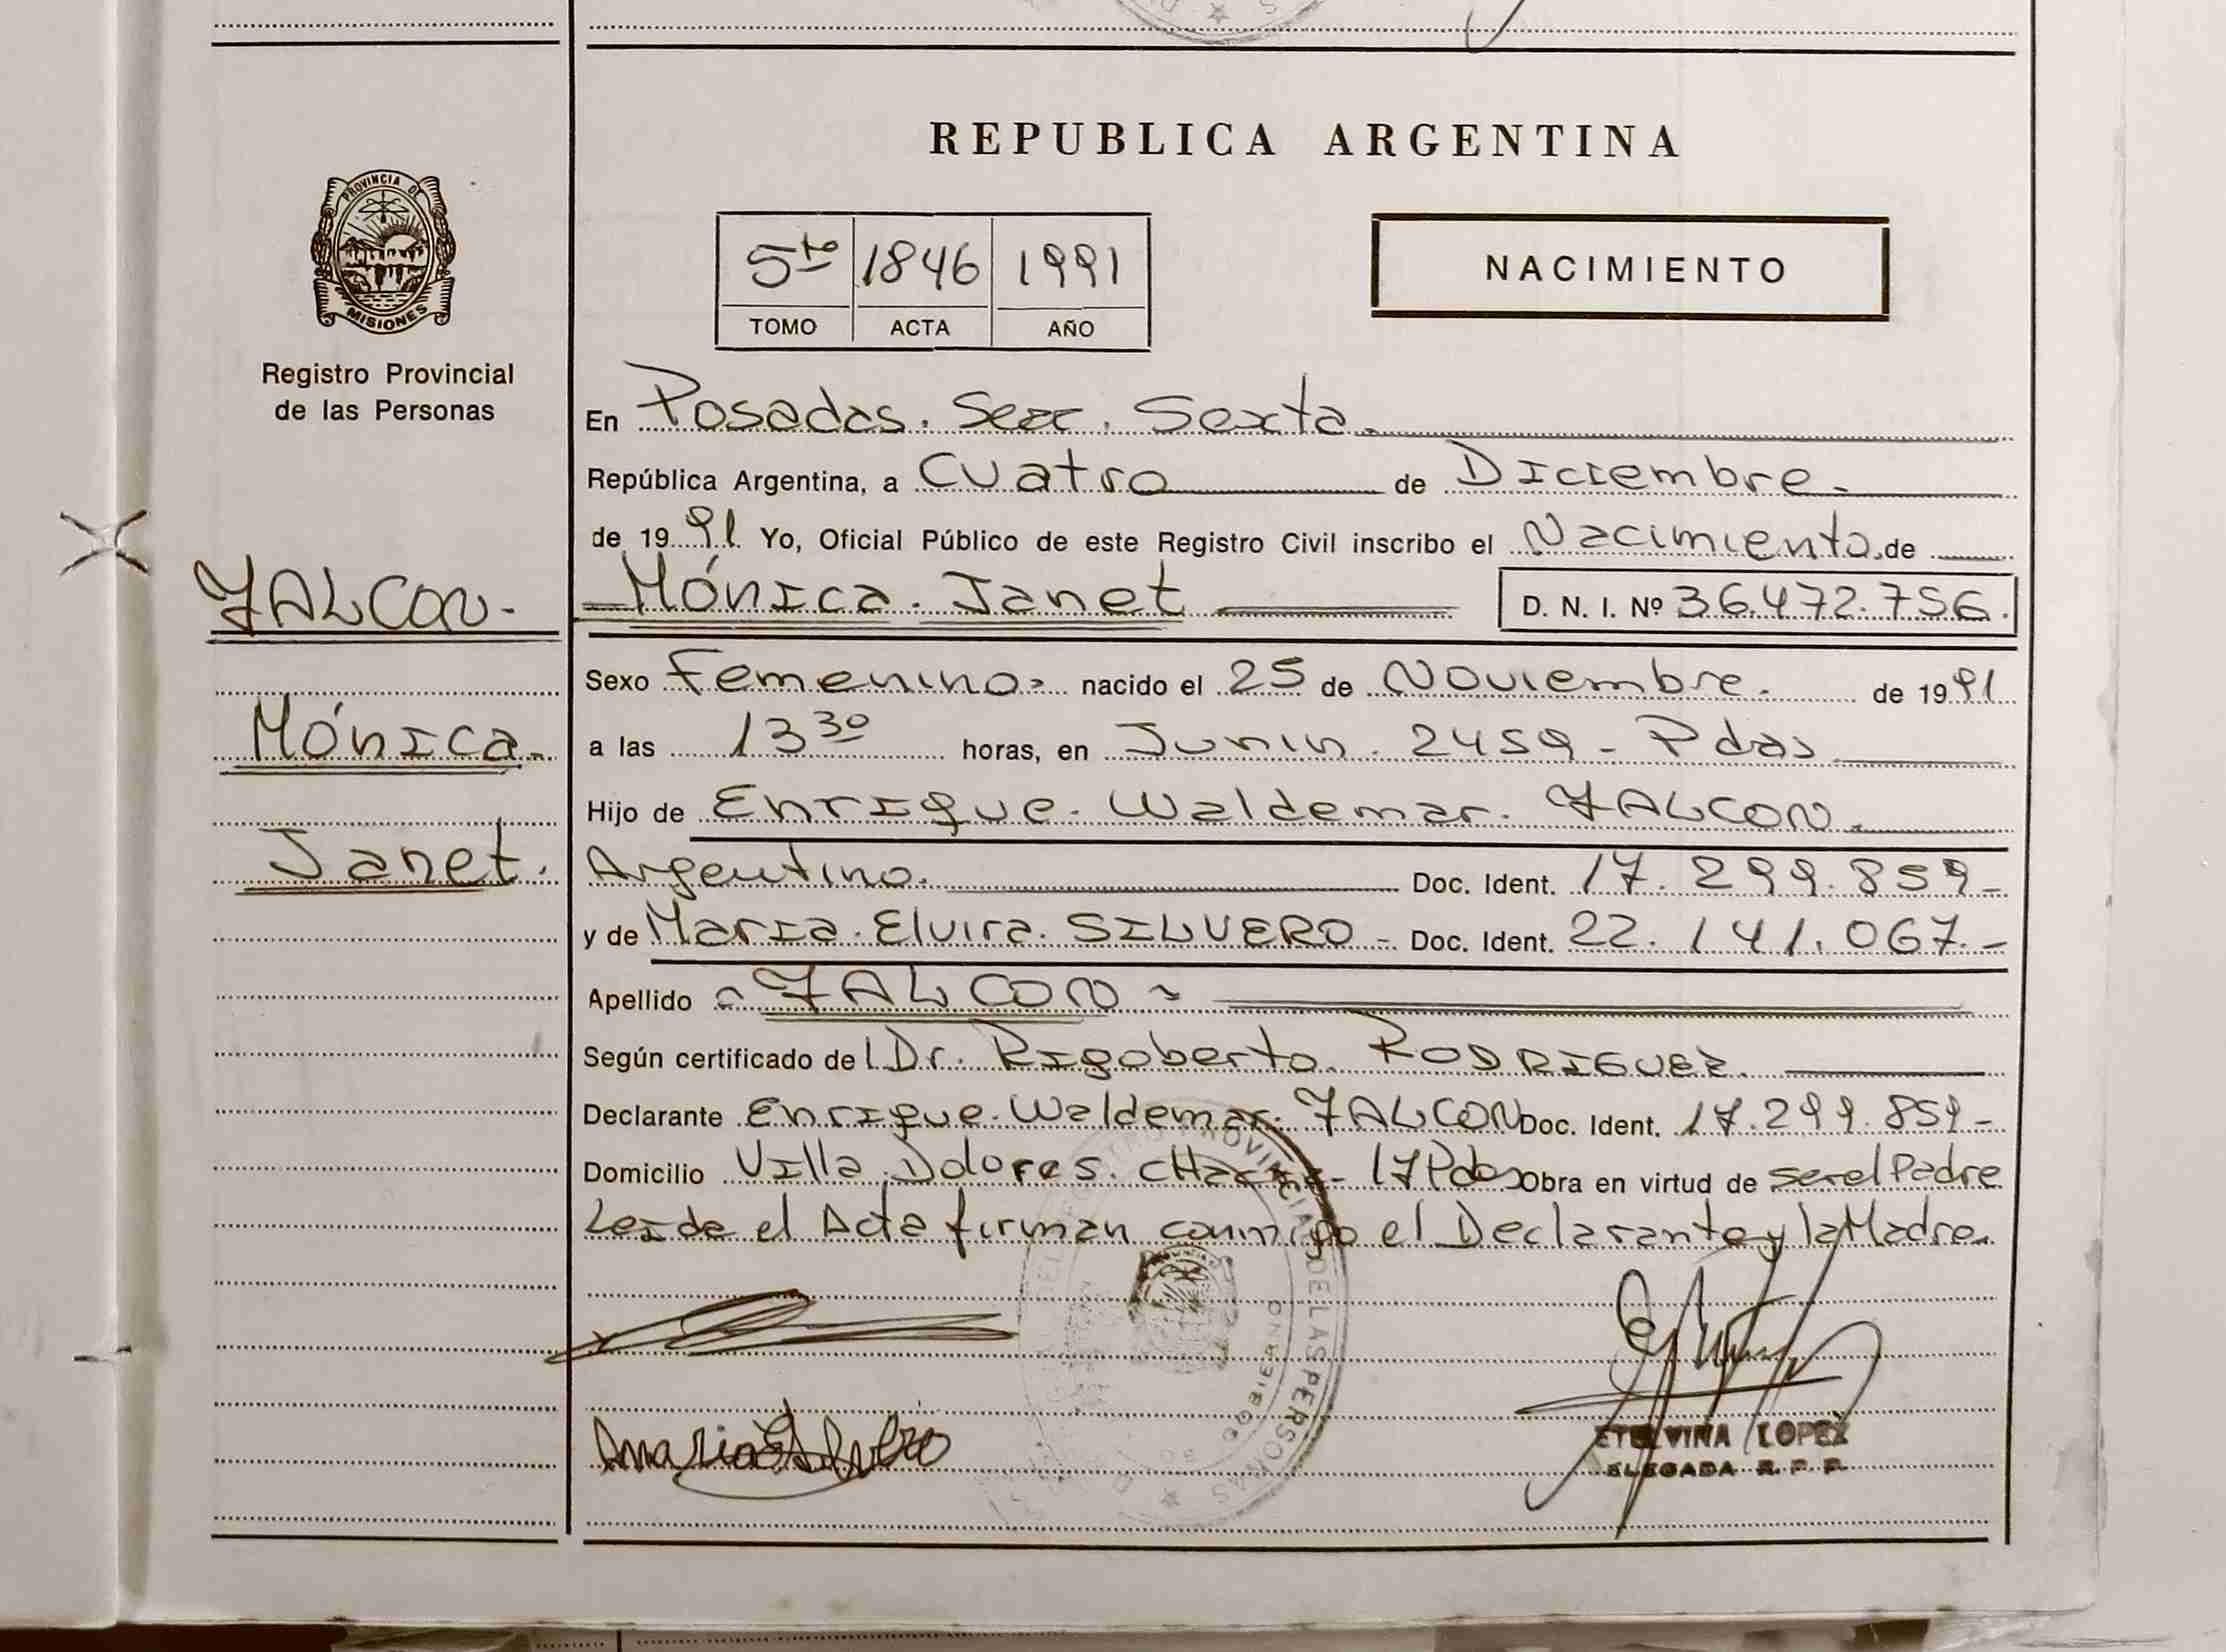 REPUBLICA ARGENTINA
PROVINCIA DE
MISIONES
Registro Provincial
de las Personas
5to 1846 1991
TOMO ACTA AÑO
NACIMIENTO
En Posadas. Secc. Sexta.
República Argentina, a Cuatro de Diciembre.
de 1991 Yo, Oficial Público de este Registro Civil inscribo el Nacimiento. de
FALCON.
Mónica. Janet D. N. I. Nº 36.472.756.
Sexo Femenino nacido el 25 de Noviembre. de 1991
Mónica.
a las 13 30 horas, en Junin. 2459 - Pdas
Hijo de Enrique. Waldemar. FALCON.
Janet.
Argentino. Doc. Ident. 17.299.859-
y de Maria. Elvira. SILVERO - Doc. Ident. 22.141.067.-
Apellido FALCON
Según certificado del Dr. Rigoberto. RODRIGUEZ.
Declarante Enrique. Waldemar. FALCON Doc. Ident. 17.299.859-
Domicilio Villa. Dolores. CHacra - 17 Pdas Obra en virtud de ser el Padre
Leida el Acta firman conmigo el Declarante y la Madre.
REGISTRO PROVINCIAL DE LAS PERSONAS
Maria E Silvero
ETELVINA LOPEZ
DELEGADA R. P. P.